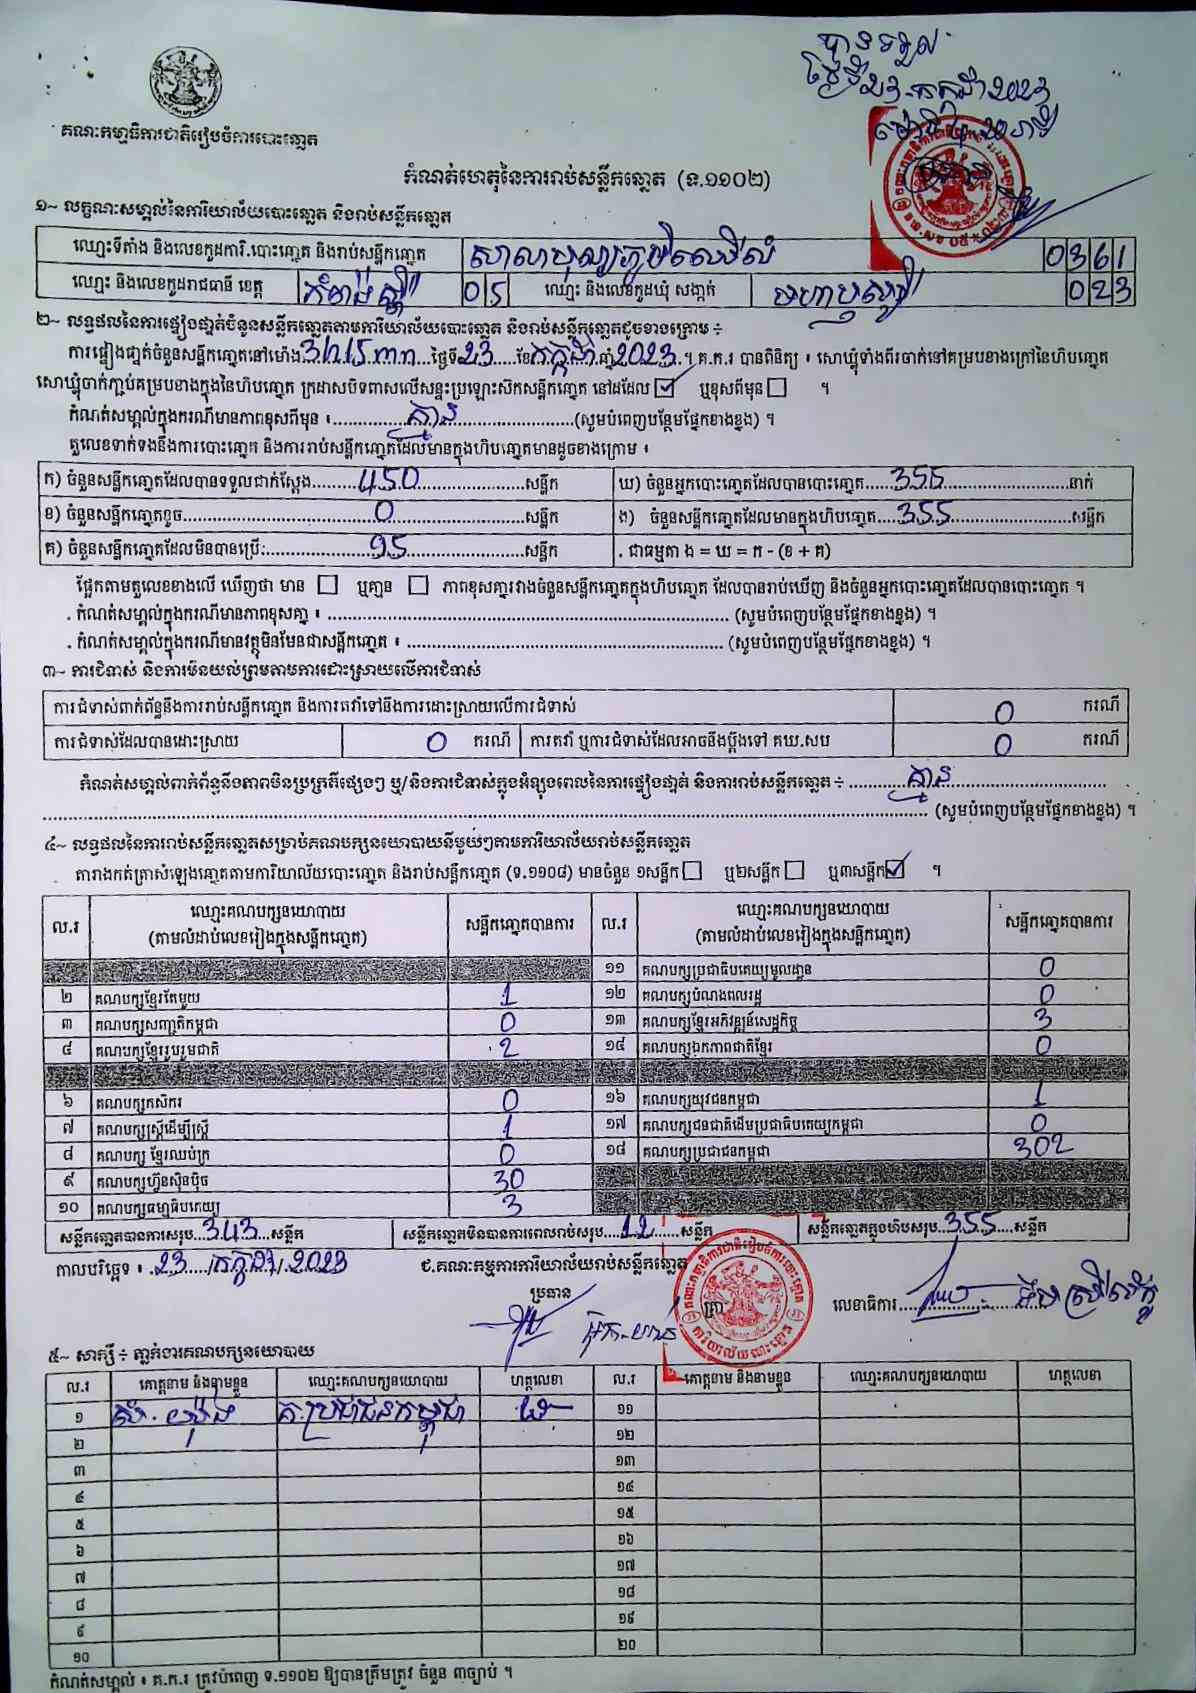 បានទទួល
ថ្ងៃទី23.កក្កដា2023
គណៈកម្មាធិការជាតិរៀបចំការបោះឆ្នោត
កំណត់ហេតុនៃការរាប់សន្លឹកឆ្នោត (ទ.១១០២)
១~ លក្ខណៈសម្គាល់នៃការិយាល័យបោះឆ្នោត និងរាប់សន្លឹកឆ្នោត
ឈ្មោះទីតាំង និងលេខកូដការិ.បោះឆ្នោត និងរាប់សន្លឹកឆ្នោត 0361
ឈ្មោះ និងលេខកូដរាជធានី ខេត្ត កំពង់ស្ពឺ 05 ឈ្មោះ និងលេខកូដឃុំ សង្កាត់ 023
២~ លទ្ធផលនៃការផ្ទៀងផ្ទាត់ចំនួនសន្លឹកឆ្នោតតាមការិយាល័យបោះឆ្នោត និងរាប់សន្លឹកឆ្នោតដូចខាងក្រោម ÷
ការផ្ទៀងផ្ទាត់ចំនួនសន្លឹកឆ្នោតនៅម៉ោង 3h15mn ថ្ងៃទី 23 ខែ កក្កដា ឆ្នាំ 2023 ។ គ.ក.រ បានពិនិត្យ ៖ សោឃ្លុំទាំងពីរចាក់នៅគម្របខាងក្រៅនៃហិបឆ្នោត
សោឃ្លុំចាក់ភ្ជាប់គម្របខាងក្នុងនៃហិបឆ្នោត ក្រដាសបិទពាសលើសន្ទះប្រឡោះស៊កសន្លឹកឆ្នោត នៅដដែល ☑ ឬខុសពីមុន ☐ ។
កំណត់សម្គាល់ក្នុងករណីមានភាពខុសពីមុន ៖ គ្មាន (សូមបំពេញបន្ថែមផ្នែកខាងខ្នង) ។
តួលេខទាក់ទងនឹងការបោះឆ្នោត និងការរាប់សន្លឹកឆ្នោតដែលមានក្នុងហិបឆ្នោតមានដូចខាងក្រោម ៖
ក) ចំនួនសន្លឹកឆ្នោតដែលបានទទួលជាក់ស្តែង 450 សន្លឹក ឃ) ចំនួនអ្នកបោះឆ្នោតដែលបានបោះឆ្នោត 355 នាក់
ខ) ចំនួនសន្លឹកឆ្នោតខូច 0 សន្លឹក ង) ចំនួនសន្លឹកឆ្នោតដែលមានក្នុងហិបឆ្នោត 355 សន្លឹក
គ) ចំនួនសន្លឹកឆ្នោតដែលមិនបានប្រើ 95 សន្លឹក . ជាធម្មតា ង = ឃ = ក - (ខ + គ)
ផ្អែកតាមតួលេខខាងលើ ឃើញថា មាន ☐ ឬគ្មាន ☐ ភាពខុសគ្នារវាងចំនួនសន្លឹកឆ្នោតក្នុងហិបឆ្នោត ដែលបានរាប់ឃើញ និងចំនួនអ្នកបោះឆ្នោតដែលបានបោះឆ្នោត ។
. កំណត់សម្គាល់ក្នុងករណីមានភាពខុសគ្នា ៖ (សូមបំពេញបន្ថែមផ្នែកខាងខ្នង) ។
. កំណត់សម្គាល់ក្នុងករណីមានវត្ថុមិនមែនជាសន្លឹកឆ្នោត ៖ (សូមបំពេញបន្ថែមផ្នែកខាងខ្នង) ។
៣~ ការជំទាស់ និងការមិនយល់ព្រមតាមការដោះស្រាយលើការជំទាស់
ការជំទាស់ពាក់ព័ន្ធនឹងការរាប់សន្លឹកឆ្នោត និងការតវ៉ាទៅនឹងការដោះស្រាយលើការជំទាស់ 0 ករណី
ការជំទាស់ដែលបានដោះស្រាយ 0 ករណី ការតវ៉ា ឬការជំទាស់ដែលអាចនឹងប្តឹងទៅ គឃ.សប 0 ករណី
កំណត់សម្គាល់ពាក់ព័ន្ធនឹងភាពមិនប្រក្រតីផ្សេងៗ ឬ/និងការជំទាស់ក្នុងអំឡុងពេលនៃការផ្ទៀងផ្ទាត់ និងការរាប់សន្លឹកឆ្នោត ÷ គ្មាន
(សូមបំពេញបន្ថែមផ្នែកខាងខ្នង) ។
៤~ លទ្ធផលនៃការរាប់សន្លឹកឆ្នោតសម្រាប់គណបក្សនយោបាយនីមួយៗតាមការិយាល័យរាប់សន្លឹកឆ្នោត
តារាងកត់ត្រាសំឡេងឆ្នោតតាមការិយាល័យបោះឆ្នោត និងរាប់សន្លឹកឆ្នោត (ទ.១១០៨) មានចំនួន ១សន្លឹក ☐ ឬ២សន្លឹក ☐ ឬ៣សន្លឹក ☑ ។
ល.រ ឈ្មោះគណបក្សនយោបាយ (តាមលំដាប់លេខរៀងក្នុងសន្លឹកឆ្នោត) សន្លឹកឆ្នោតបានការ ល.រ ឈ្មោះគណបក្សនយោបាយ (តាមលំដាប់លេខរៀងក្នុងសន្លឹកឆ្នោត) សន្លឹកឆ្នោតបានការ
១១ គណបក្សប្រជាធិបតេយ្យមូលដ្ឋាន 0
២ គណបក្សខ្មែរតែមួយ 1 ១២ គណបក្សបំណងពលរដ្ឋ 0
៣ គណបក្សសញ្ជាតិកម្ពុជា 0 ១៣ គណបក្សខ្មែរអភិវឌ្ឍន៍សេដ្ឋកិច្ច 3
៤ គណបក្សខ្មែររួបរួមជាតិ 2 ១៤ គណបក្សឯកភាពជាតិខ្មែរ 0
៦ គណបក្សកសិករ 0 ១៦ គណបក្សយុវជនកម្ពុជា 1
៧ គណបក្សស្ត្រីដើម្បីស្ត្រី 1 ១៧ គណបក្សជនជាតិដើមប្រជាធិបតេយ្យកម្ពុជា 0
៨ គណបក្ស ខ្មែរឈប់ក្រ 0 ១៨ គណបក្សប្រជាជនកម្ពុជា 302
៩ គណបក្សហ៊្វុនស៊ិនប៉ិច 30
១០ គណបក្សធម្មាធិបតេយ្យ 3
សន្លឹកឆ្នោតបានការសរុប 343 សន្លឹក សន្លឹកឆ្នោតមិនបានការពេលរាប់សរុប 12 សន្លឹក សន្លឹកឆ្នោតក្នុងហិបសរុប 355 សន្លឹក
កាលបរិច្ឆេទ ៖ 23 / កក្កដា / 2023 ជ.គណៈកម្មការការិយាល័យរាប់សន្លឹកឆ្នោត
ប្រធាន ត្រា លេខាធិការ
៥~ សាក្សី ÷ ភ្នាក់ងារគណបក្សនយោបាយ
ល.រ គោត្តនាម និងនាមខ្លួន ឈ្មោះគណបក្សនយោបាយ ហត្ថលេខា ល.រ គោត្តនាម និងនាមខ្លួន ឈ្មោះគណបក្សនយោបាយ ហត្ថលេខា
១ គ.ប្រជាជនកម្ពុជា ១១
២ ១២
៣ ១៣
៤ ១៤
៥ ១៥
៦ ១៦
៧ ១៧
៨ ១៨
៩ ១៩
១០ ២០
កំណត់សម្គាល់ ៖ គ.ក.រ ត្រូវបំពេញ ទ.១១០២ ឱ្យបានត្រឹមត្រូវ ចំនួន ៣ច្បាប់ ។